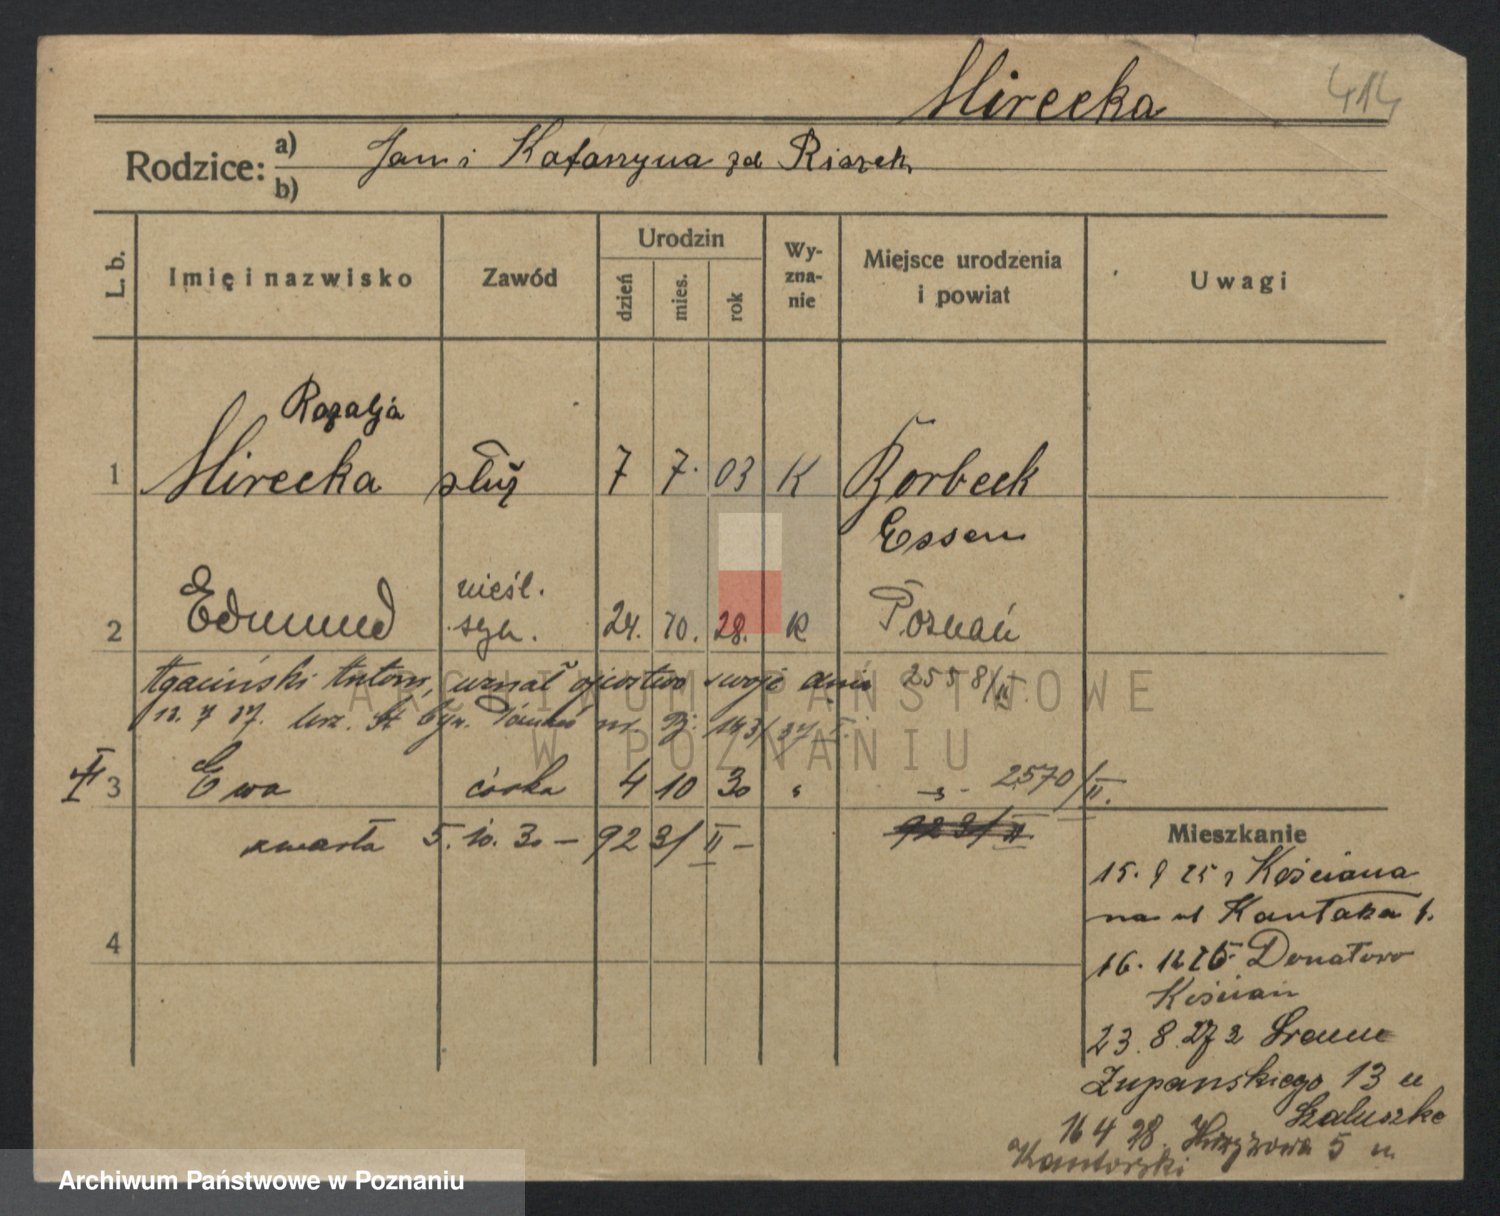 Mirecka
414
Rodzice: a) Jan i Katarzyna zd
b)
L. b.
Imię i nazwisko
Zawód
Urodzin
dzień
mies.
rok
Wy-
zna-
nie
Miejsce urodzenia
i powiat
Uwagi
Rozalja
1 Mirecka służ 7 7. 03 K Borbeck
Essen
nieśl.
2 Edmund syn. 24. 10. 28. K Poznań
Antoni, uznał ojcostwo swoje dnia 2558/II
12. 7 37. urz. St Cyw. Poznań nr. 143/37
3 Ewa córka 4 10 30 " -"- 2570/II.
zmarła 5. 10. 30 – 923/II –
923/II
4
Mieszkanie
15. 9 25 z Kościana
na ul Kantaka 1.
16. 12 25 Donatowo
Kościan
23. 8. 27 z Śrem
Żupańskiego 13 u
16 4 28. 5 u
Kantorski
ARCHIWUM PAŃSTWOWE
W POZNANIU
Archiwum Państwowe w Poznaniu